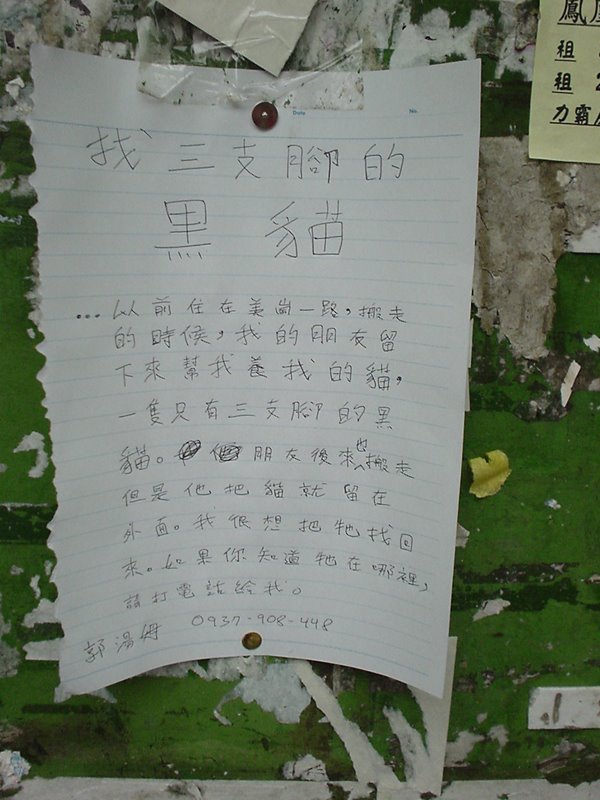 Date
No.
找三支腳的
黑貓
...以前住在美崗一路,搬走
的時候,我的朋友留
下來幫我養我的貓,
一隻只有三支腳的黑
貓。朋友後來也搬走
但是他把貓就留在
外面。我很想把牠找回
來。如果你知道牠在哪裡,
請打電話給我。
郭湯姆 0937-908-448
鳳
租
租 2
力霸